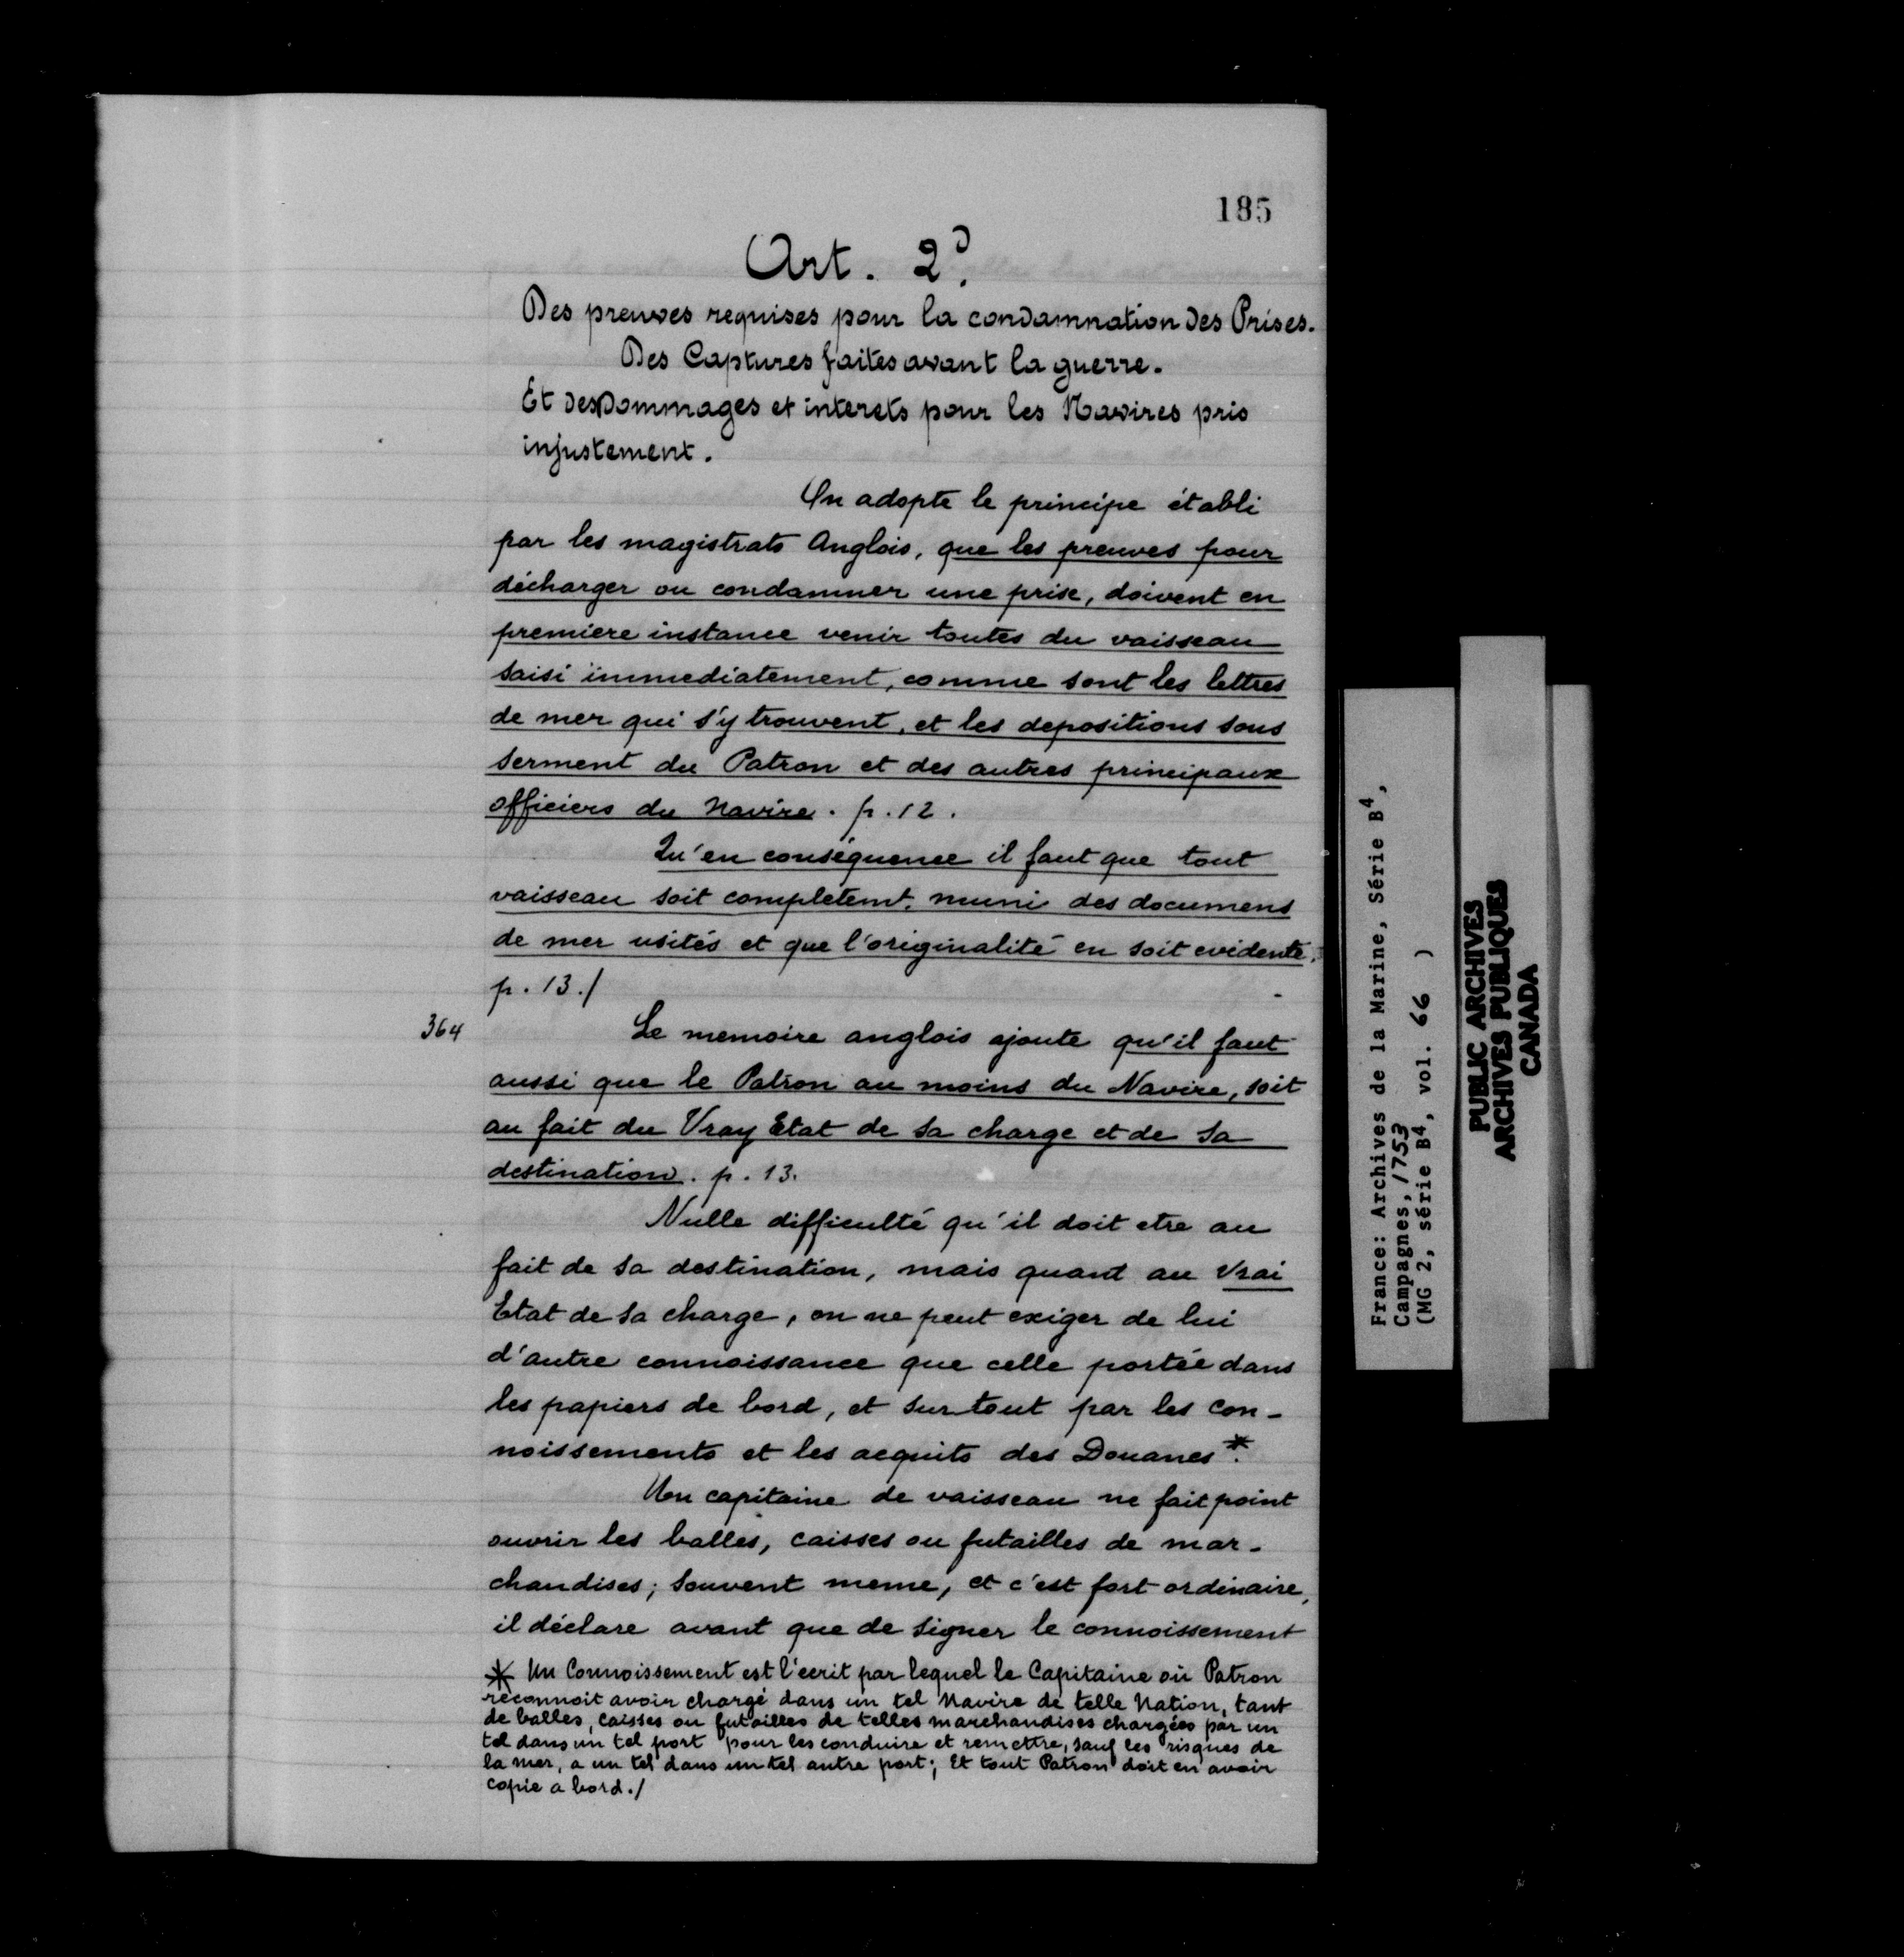 185
Art. 2d.
Des preuves requises pour la condamnation des Prises.
Des Captures faites avant la guerre.
Et des Dommages et interets pour les Navires pris
injustement.
On adopte le principe établi
par les magistrats Anglois, que les preuves pour
décharger ou condamner une prise, doivent en
premiere instance venir toutes du vaisseau
saisi immediatement, comme sont les lettres
de mer qui s'y trouvent, et les depositions sous
serment du Patron et des autres principaux
officiers du Navire. p. 12.
Qu'en conséquence il faut que tout
vaisseau soit completemt. muni des documens
de mer usités et que l'originalité en soit evidente.
p. 13./
364
Le memoire anglois ajoute qu'il faut
aussi que le Patron au moins du Navire, soit
au fait du Vray Etat de sa charge et de sa
destination. p. 13.
Nulle difficulté qu'il doit etre au
fait de sa destination, mais quant au Vrai
Etat de sa charge, on ne peut exiger de lui
d'autre connoissance que celle portée dans
les papiers de bord, et sur tout par les con-
noissements et les acquits des Douanes*.
Un capitaine de vaisseau ne fait point
ouvrir les balles, caisses ou futailles de mar-
chandises; souvent meme, et c'est fort ordinaire,
il déclare avant que de signer le connoissement
* Un Connoissement est l'ecrit par lequel le Capitaine où Patron
reconnoit avoir chargé dans un tel Navire de telle Nation, tant
de balles, caisses ou futailles de telles marchandises chargées par un
tel dans un tel port pour les conduire et remettre, sauf les risques de
la mer, a un tel dans un tel autre port; Et tout Patron doit en avoir
copie a bord./
France: Archives de la Marine, Série B4,
Campagnes, 1753
(MG 2, série B4, vol. 66 )
PUBLIC ARCHIVES
ARCHIVES PUBLIQUES
CANADA